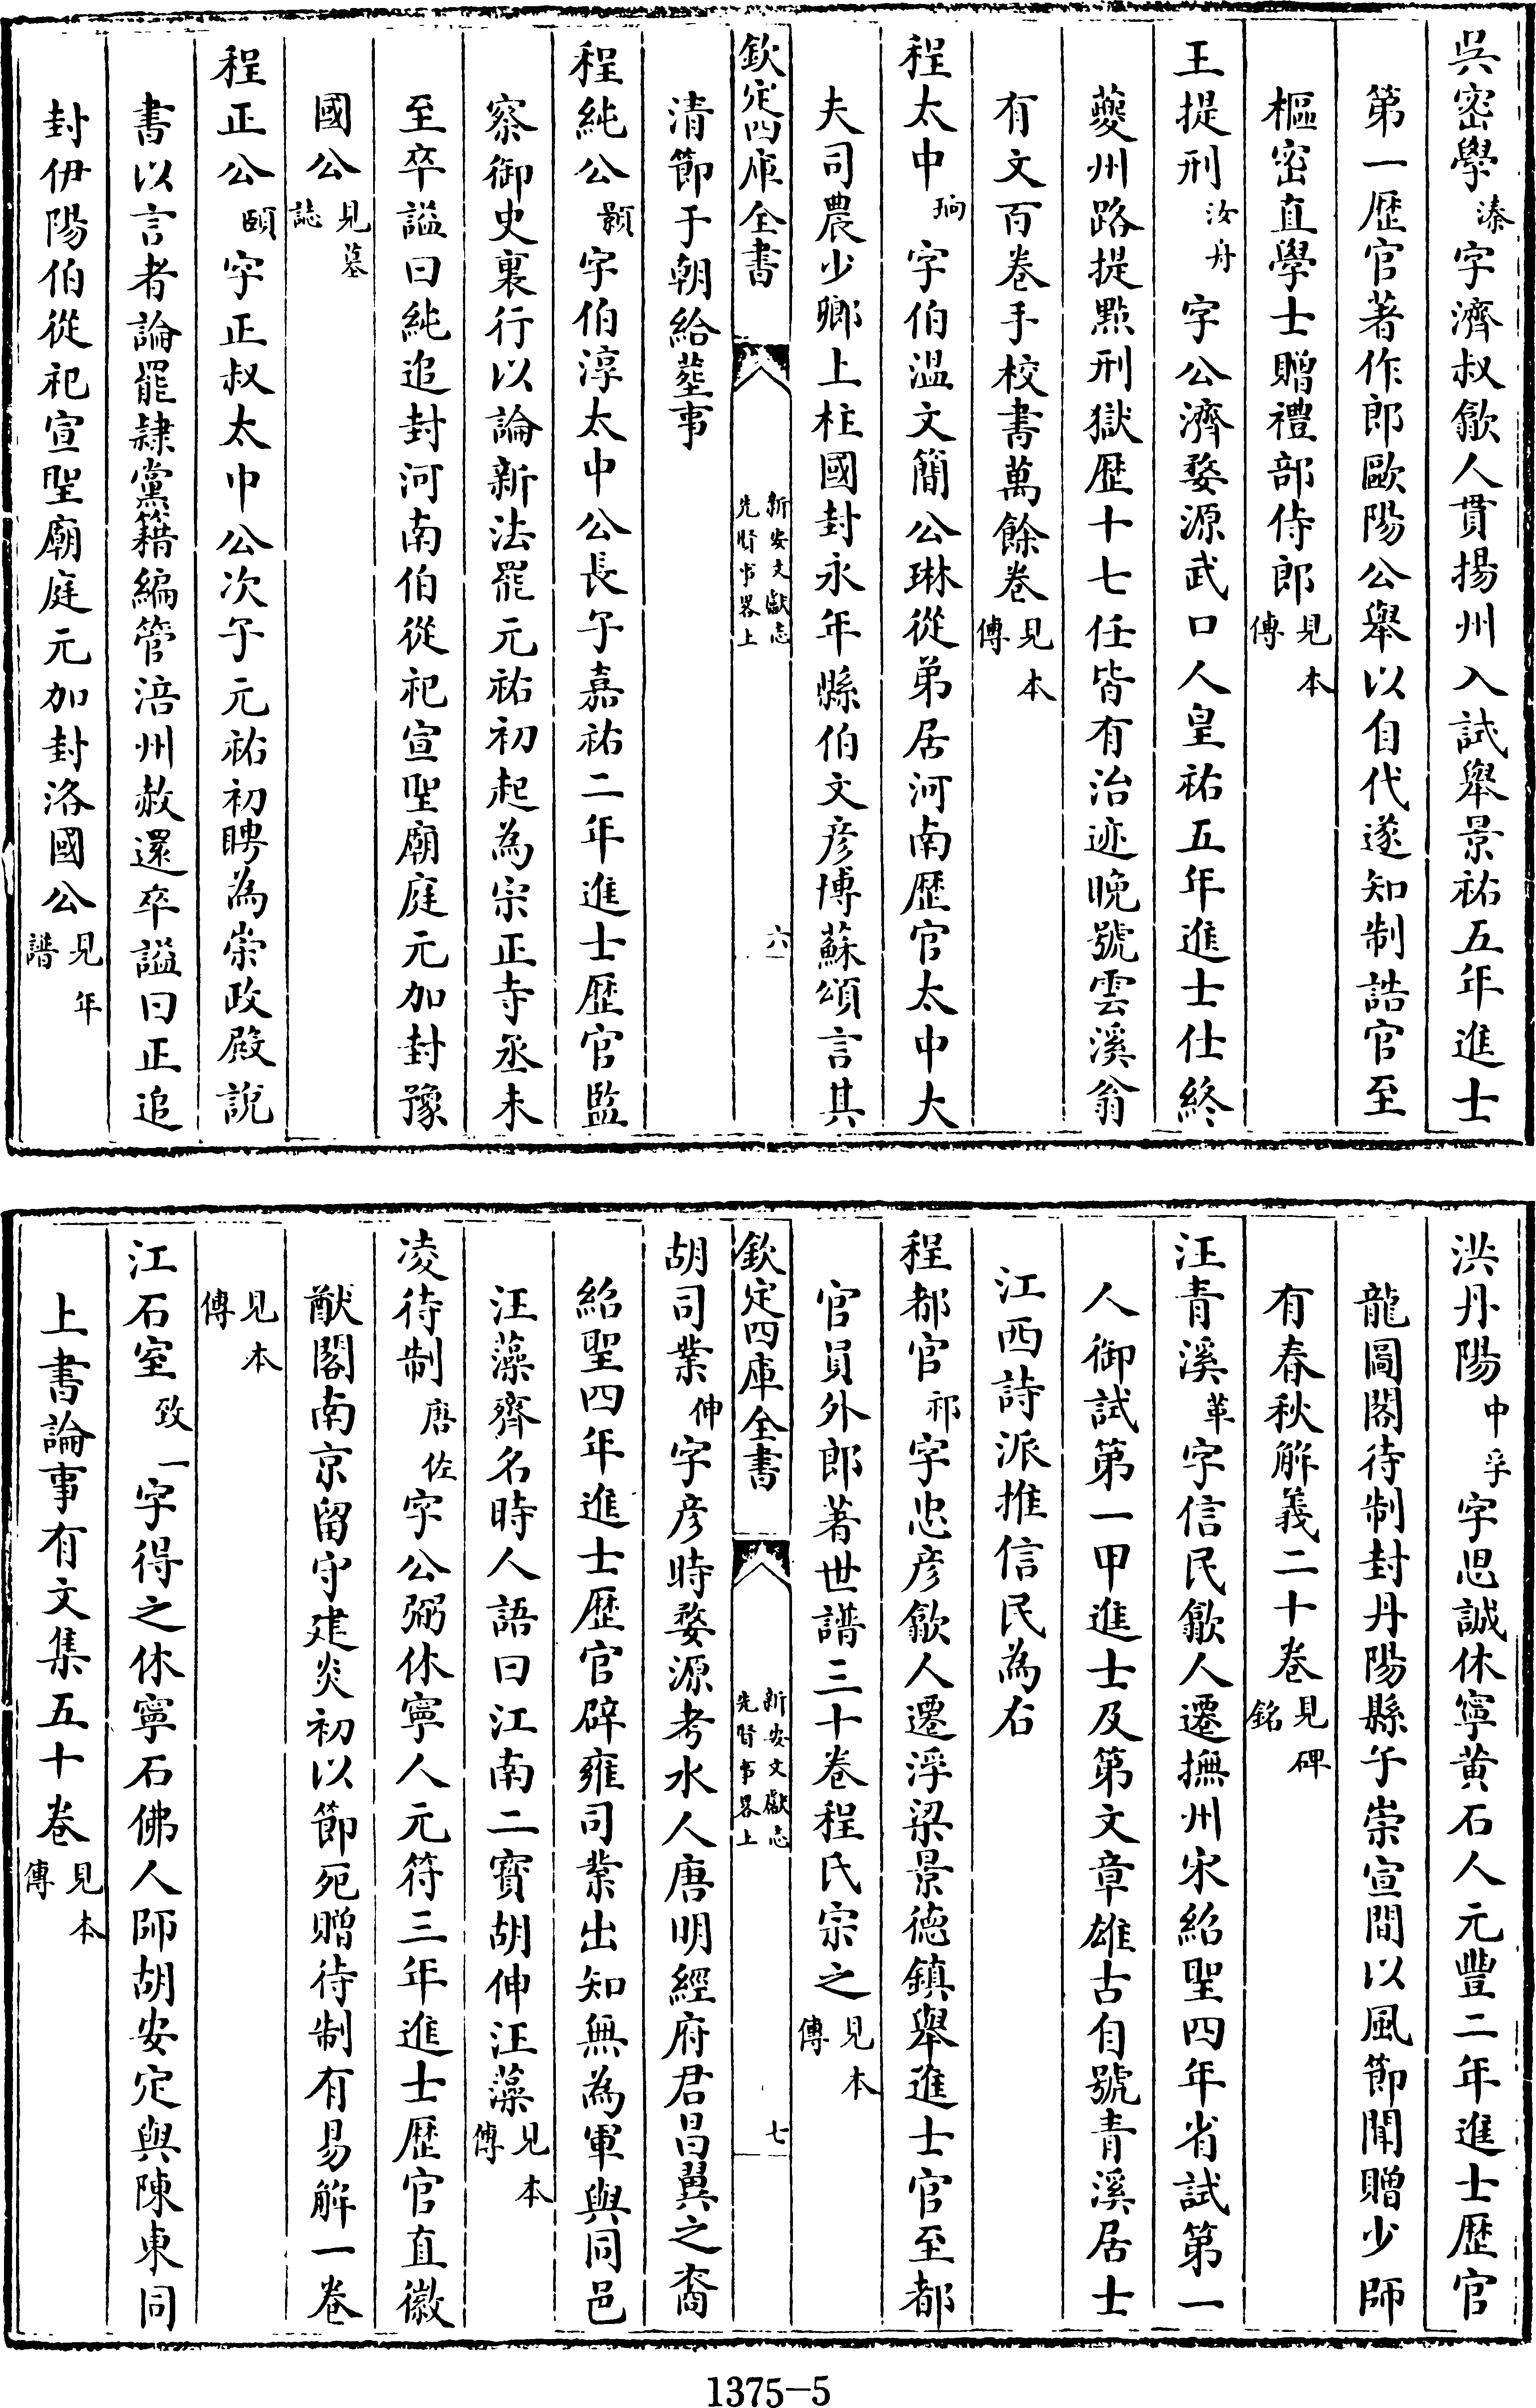 吳密學溱字濟叔歙人貫揚州入試舉景祐五年進士
第一歴官著作郎歐陽公舉以自代遂知制誥官至
樞密直學士贈禮部侍郎見本傳
王提刑汝舟字公濟婺源武口人皇祐五年進士仕終
夔州路提㸃刑獄歴十七任皆有治迹晚號雲溪翁
有文百卷手校書萬餘卷見本傳
程太中珦字伯温文簡公琳從弟居河南歴官太中大
夫司農少卿上柱國封永年縣伯文彦博蘇頌言其
欽定四庫全書
新安文獻志
先賢事畧上
六
清節于朝給塟事
程純公顥字伯淳太中公長子嘉祐二年進士歴官監
察御史裏行以論新法罷元祐初起為宗正寺丞未
至卒諡曰純追封河南伯從祀宣聖廟庭元加封豫
國公見墓誌
程正公頤字正叔太中公次子元祐初聘為崇政殿說
書以言者論罷隷黨籍編管涪州赦還卒諡曰正追
封伊陽伯從祀宣聖廟庭元加封洛國公見年譜
洪丹陽中孚字思誠休寧黄石人元豐二年進士歴官
龍圖閣待制封丹陽縣子崇宣間以風節聞贈少師
有春秋解義二十卷見碑銘
汪青溪革字信民歙人遷撫州宋紹聖四年省試第一
人御試第一甲進士及第文章雄古自號青溪居士
江西詩派推信民為右
程都官祁字忠彦歙人遷浮梁景徳鎮舉進士官至都
官員外郎著世譜三十卷程氏宗之見本傳
欽定四庫全書
新安文獻志
先賢事畧上
七
胡司業伸字彦時婺源考水人唐明經府君昌翼之裔
紹聖四年進士歴官辟雍司業出知無為軍與同邑
汪藻齊名時人語曰江南二寳胡伸汪藻見本傳
凌待制唐佐字公弼休寧人元符三年進士歴官直徽
猷閣南京留守建炎初以節死贈待制有易解一卷
見本傳
江石室致一字得之休寧石佛人師胡安定與陳東同
上書論事有文集五十卷見本傳
1375-5